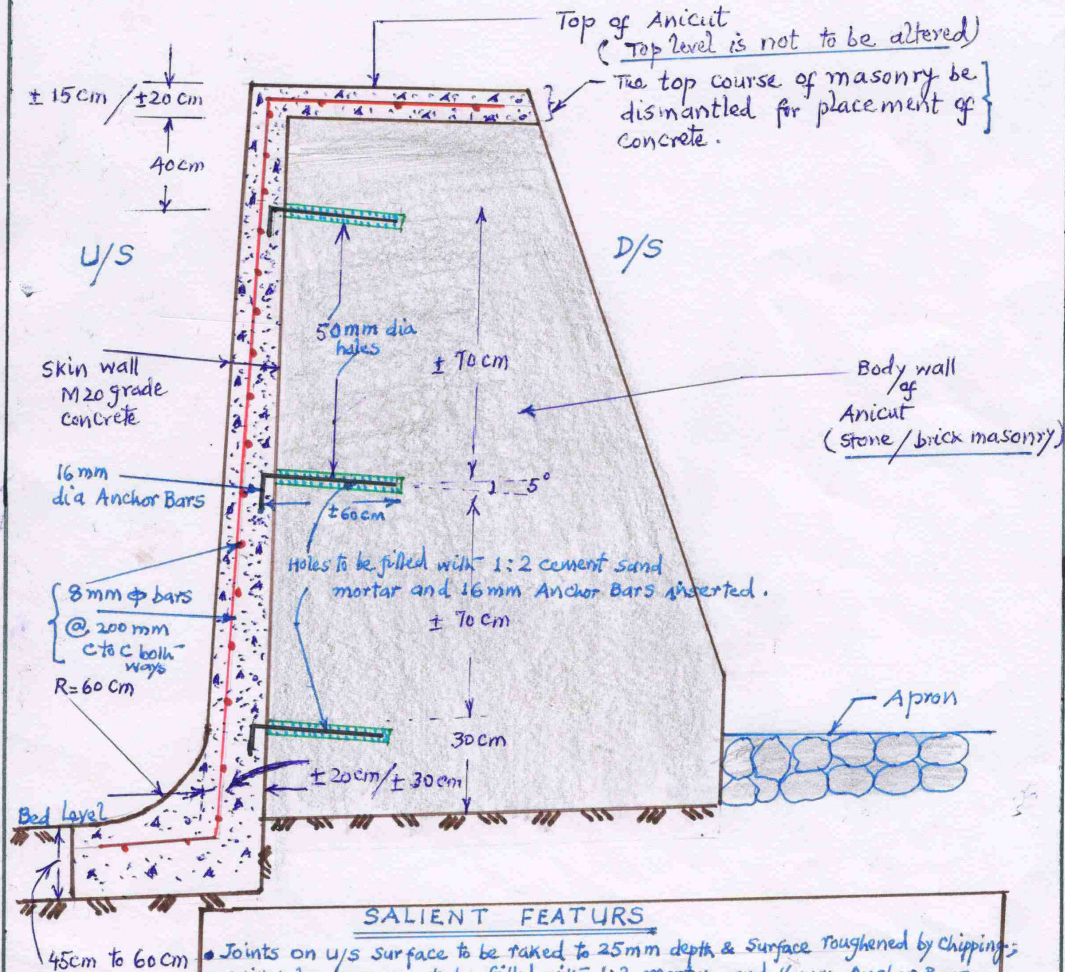 Top of Anicut
(Top level is not to be altered)
The top course of masonry be
dismantled for placement of
concrete.
± 15cm / ±20cm
40cm
U/S
D/S
50mm dia
holes
± 70cm
Skin wall
M20 grade
concrete
Body wall
of
Anicut
(stone/brick masonry)
16mm
dia Anchor Bars
5°
±60cm
Holes to be filled with 1:2 cement sand
mortar and 16mm Anchor Bars inserted.
8mm ф bars
@ 200mm
C to C both
ways
± 70cm
R=60cm
Apron
30cm
±20cm/±30cm
Bed Level
45cm to 60cm
SALIENT FEATURS
• Joints on u/s surface to be raked to 25mm depth & surface roughened by chipping;
to be filled with 1:2 mortar and Anchor